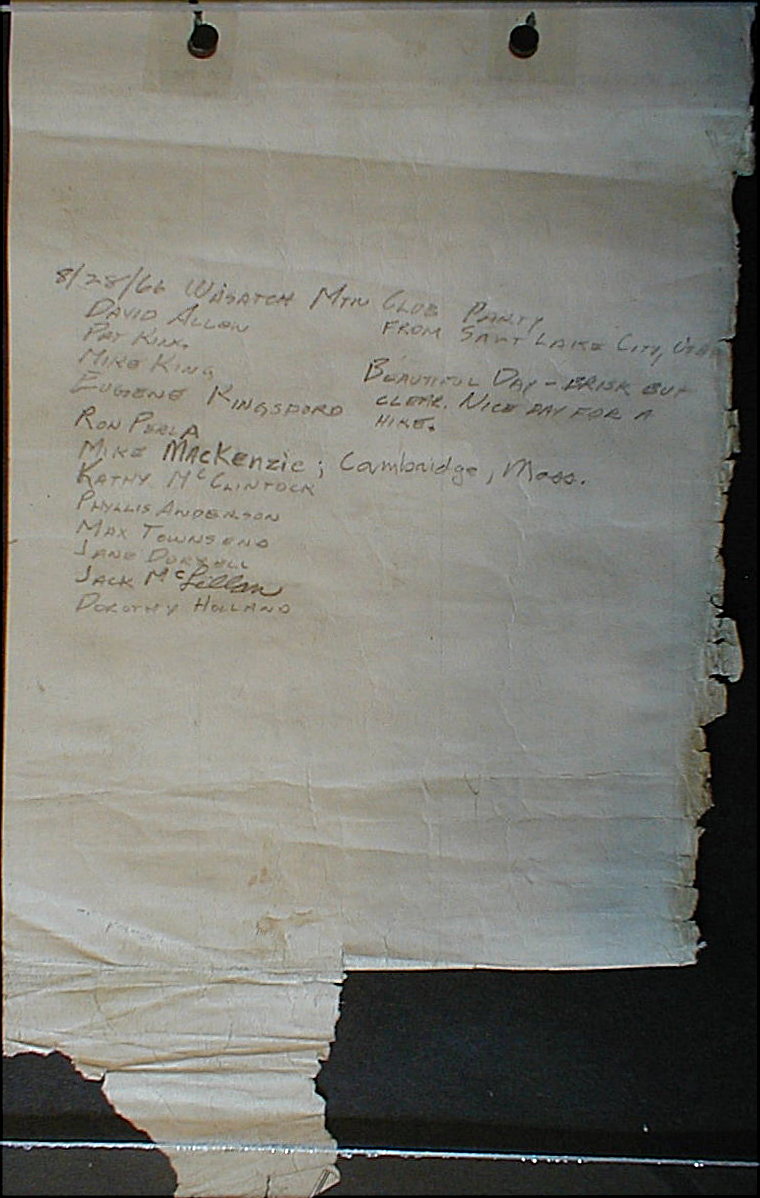 8/28/66 WASATCH MTN CLUB PARTY
FROM SALT LAKE CITY, UTAH
DAVID ALLEN
PAT KING
MIKE KING
EUGENE KINGSFORD
RON PERLA
MIKE MACKENZIE; Cambridge, Mass.
KATHY McCLINTOCK
PHYLLIS ANDERSON
MAX TOWNSEND
JANE
JACK McLellan
DOROTHY HOLLAND
BEAUTIFUL DAY - BRISK BUT
CLEAR. NICE DAY FOR A
HIKE.